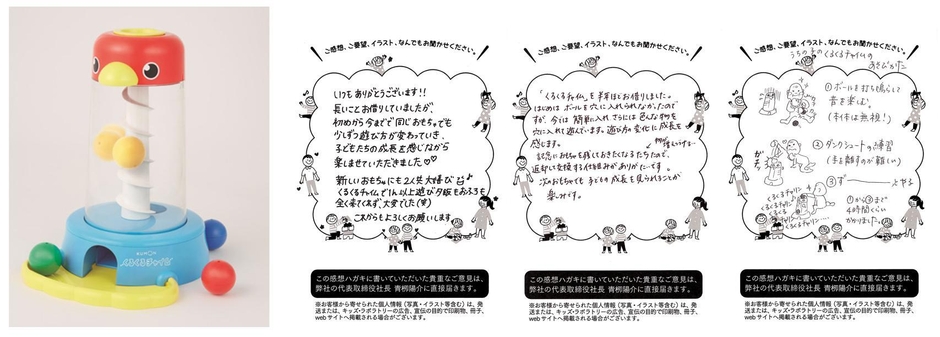 くるくるチャイム
ご感想、ご要望、イラスト、なんでもお聞かせください。
いつもありがとうございます!!
長いことお借りしていましたが、
初めから今までで同じおもちゃでも
少しずつ遊び方が変わっていき、
子どもたちの成長を感じながら
楽しませていただきました♡♡
新しいおもちゃにも2人共大喜び
くるくるチャイムで1h以上遊び夕飯もおふろも
全く来てくれず、大変でした(笑)
これからもよろしくお願いします。
この感想ハガキに書いていただいた貴重なご意見は、
弊社の代表取締役社長 青栁陽介に直接届きます。
※お客様から寄せられた個人情報(写真・イラスト等含む)は、発
送または、キッズ・ラボラトリーの広告、宣伝の目的で印刷物、冊子、
webサイトへ掲載される場合がございます。
ご感想、ご要望、イラスト、なんでもお聞かせください。
「くるくるチャイム」を半年ほどお借りしました。
はじめは ボールを穴に入れられなかったので
すが、今では 簡単に入れ、さらには 色んなものを
穴に入れ遊んでいます。遊び方の変化に成長を
感じます。
記念におもちゃを残しておきたくなるたちなので、
返却して交換する仕組みがありがたいです。
次のおもちゃでも 子どもの成長を見られることが
楽しみです。
この感想ハガキに書いていただいた貴重なご意見は、
弊社の代表取締役社長 青栁陽介に直接届きます。
※お客様から寄せられた個人情報(写真・イラスト等含む)は、発
送または、キッズ・ラボラトリーの広告、宣伝の目的で印刷物、冊子、
webサイトへ掲載される場合がございます。
ご感想、ご要望、イラスト、なんでもお聞かせください。
うちの子のくるくるチャイムの
あそびかた
①ボールを打ち鳴らして
音を楽しむ。
(本体は無視!)
②ダンクシュートの練習
(まだ離すのが難しい)
③ず
くるくるチャリン
くるくるチャリン
くるくるチャリン…
①から③まで
4時間くらい
かかりました。
この感想ハガキに書いていただいた貴重なご意見は、
弊社の代表取締役社長 青栁陽介に直接届きます。
※お客様から寄せられた個人情報(写真・イラスト等含む)は、発
送または、キッズ・ラボラトリーの広告、宣伝の目的で印刷物、冊子、
webサイトへ掲載される場合がございます。